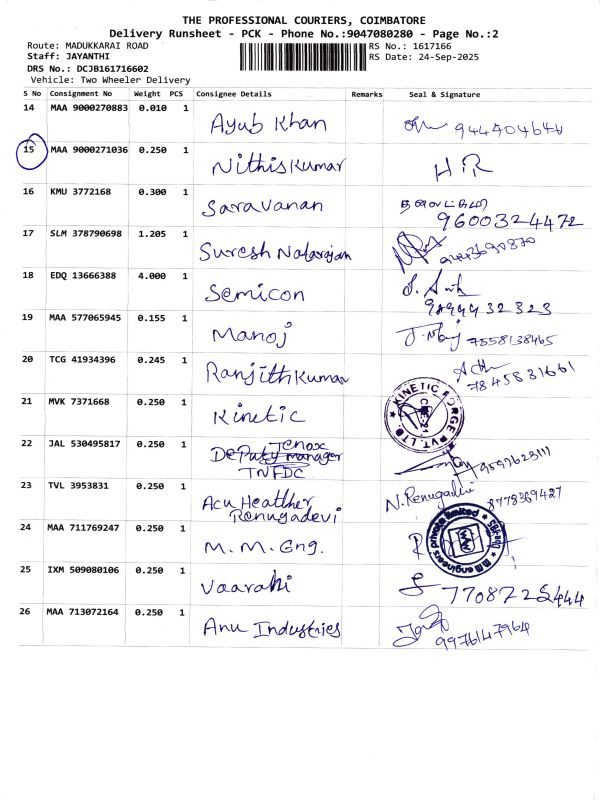 THE PROFESSIONAL COURIERS, COIMBATORE
Delivery Runsheet - PCK - Phone No.:9047080280 - Page No.:2
Route: MADUKKARAI ROAD RS No.: 1617166
Staff: JAYANTHI RS Date: 24-Sep-2025
DRS No.: DCJB161716602
Vehicle: Two Wheeler Delivery
S No Consignment No Weight PCS Consignee Details Remarks Seal & Signature
14 MAA 9000270883 0.010 1 Ayub Khan
15 MAA 9000271036 0.250 1 Nithiskumar
16 KMU 3772168 0.300 1 Saravanan
9600324472
17 SLM 378790698 1.205 1 Suresh Natarajan
18 EDQ 13666388 4.000 1 Semicon
19 MAA 577065945 0.155 1 Manoj 7558138465
20 TCG 41934396 0.245 1 Ranjithkumar 7845831661
21 MVK 7371668 0.250 1 Kinetic KINETIC FORGE PVT. LTD.
22 JAL 530495817 0.250 1 Deputy manager
TNFDC
23 TVL 3953831 0.250 1 Acu Healther N. Renugadevi 8778369427
Renugadevi
24 MAA 711769247 0.250 1 M.M. Eng.
25 IXM 509080106 0.250 1 Vaarahi
26 MAA 713072164 0.250 1 Anu Industries 9976147964